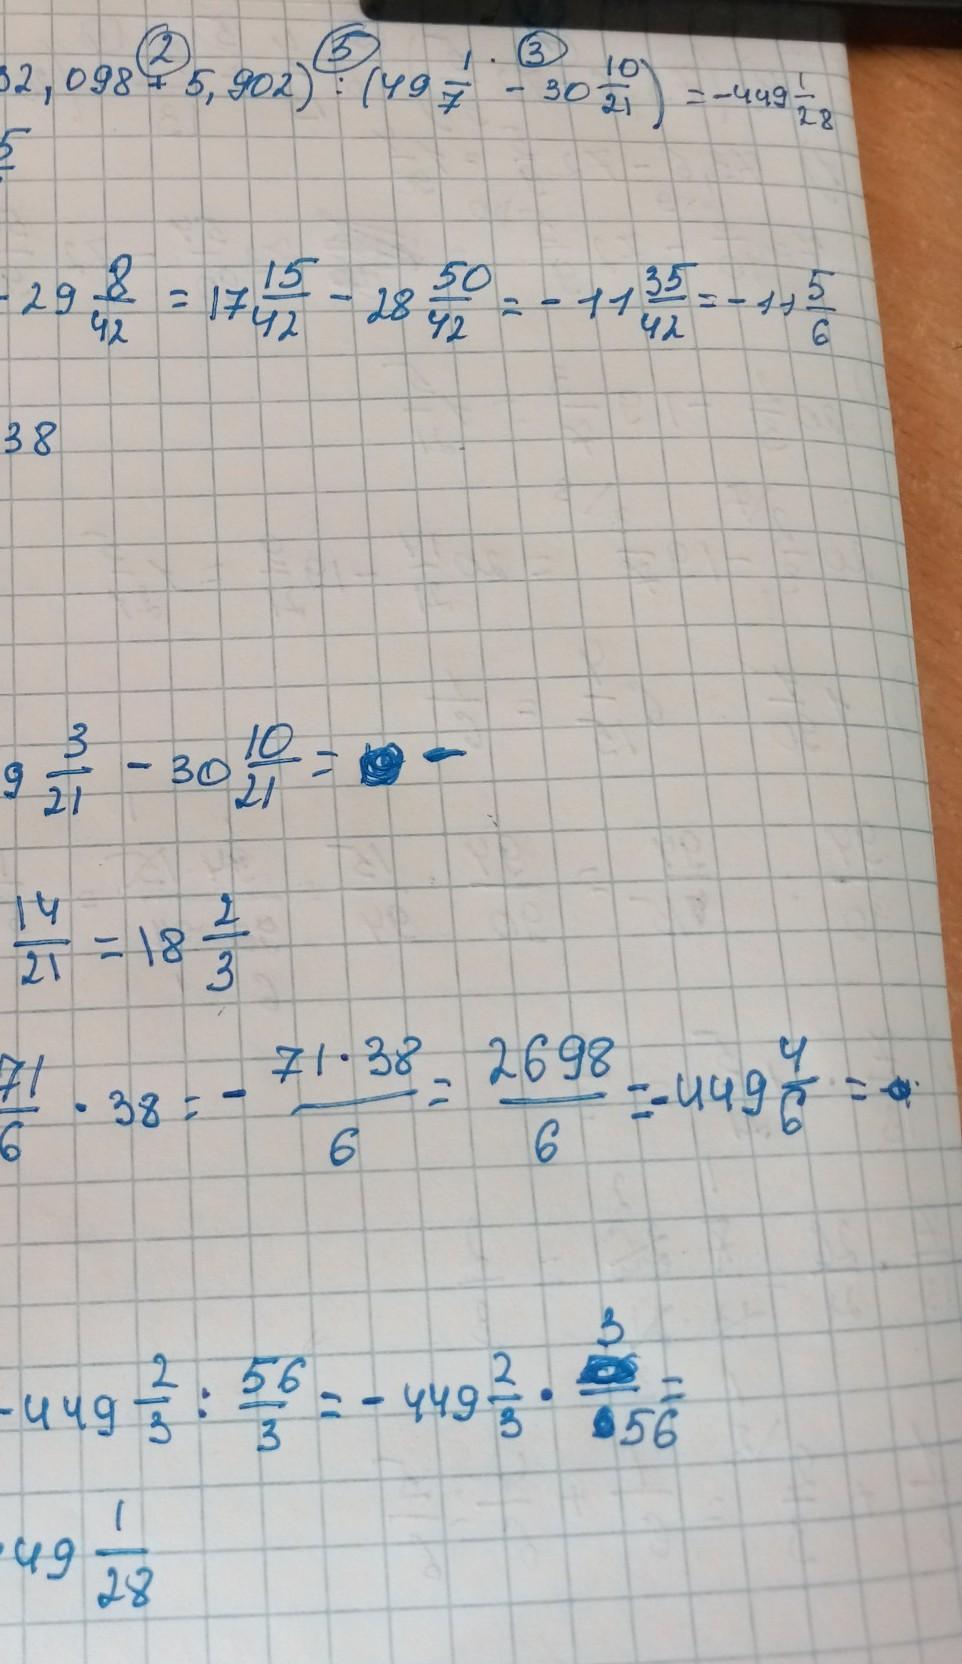 ② ⑤ ③
32,098 + 5,902) : (49 1/7 - 30 10/21) = -449 1/28
5
- 29 8/42 = 17 15/42 - 28 50/42 = -11 35/42 = -11 5/6
38
9 3/21 - 30 10/21 = -
14/21 = 18 2/3
71/6 · 38 = - 71·38/6 = 2698/6 = -449 4/6 =
-449 2/3 : 56/3 = -449 2/3 · 3/56 =
49 1/28